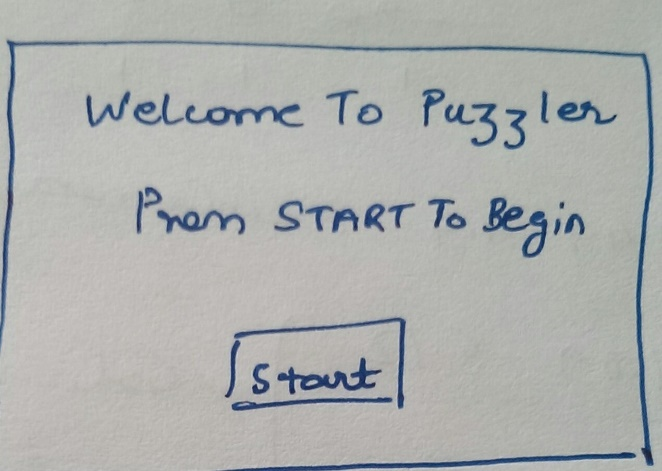 Welcome To Puzzler
Press START To Begin
Start